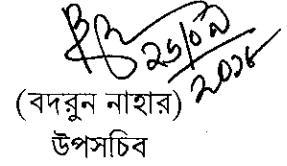 ২৬/০৯
২০১৮
(বদরুন নাহার)
উপসচিব